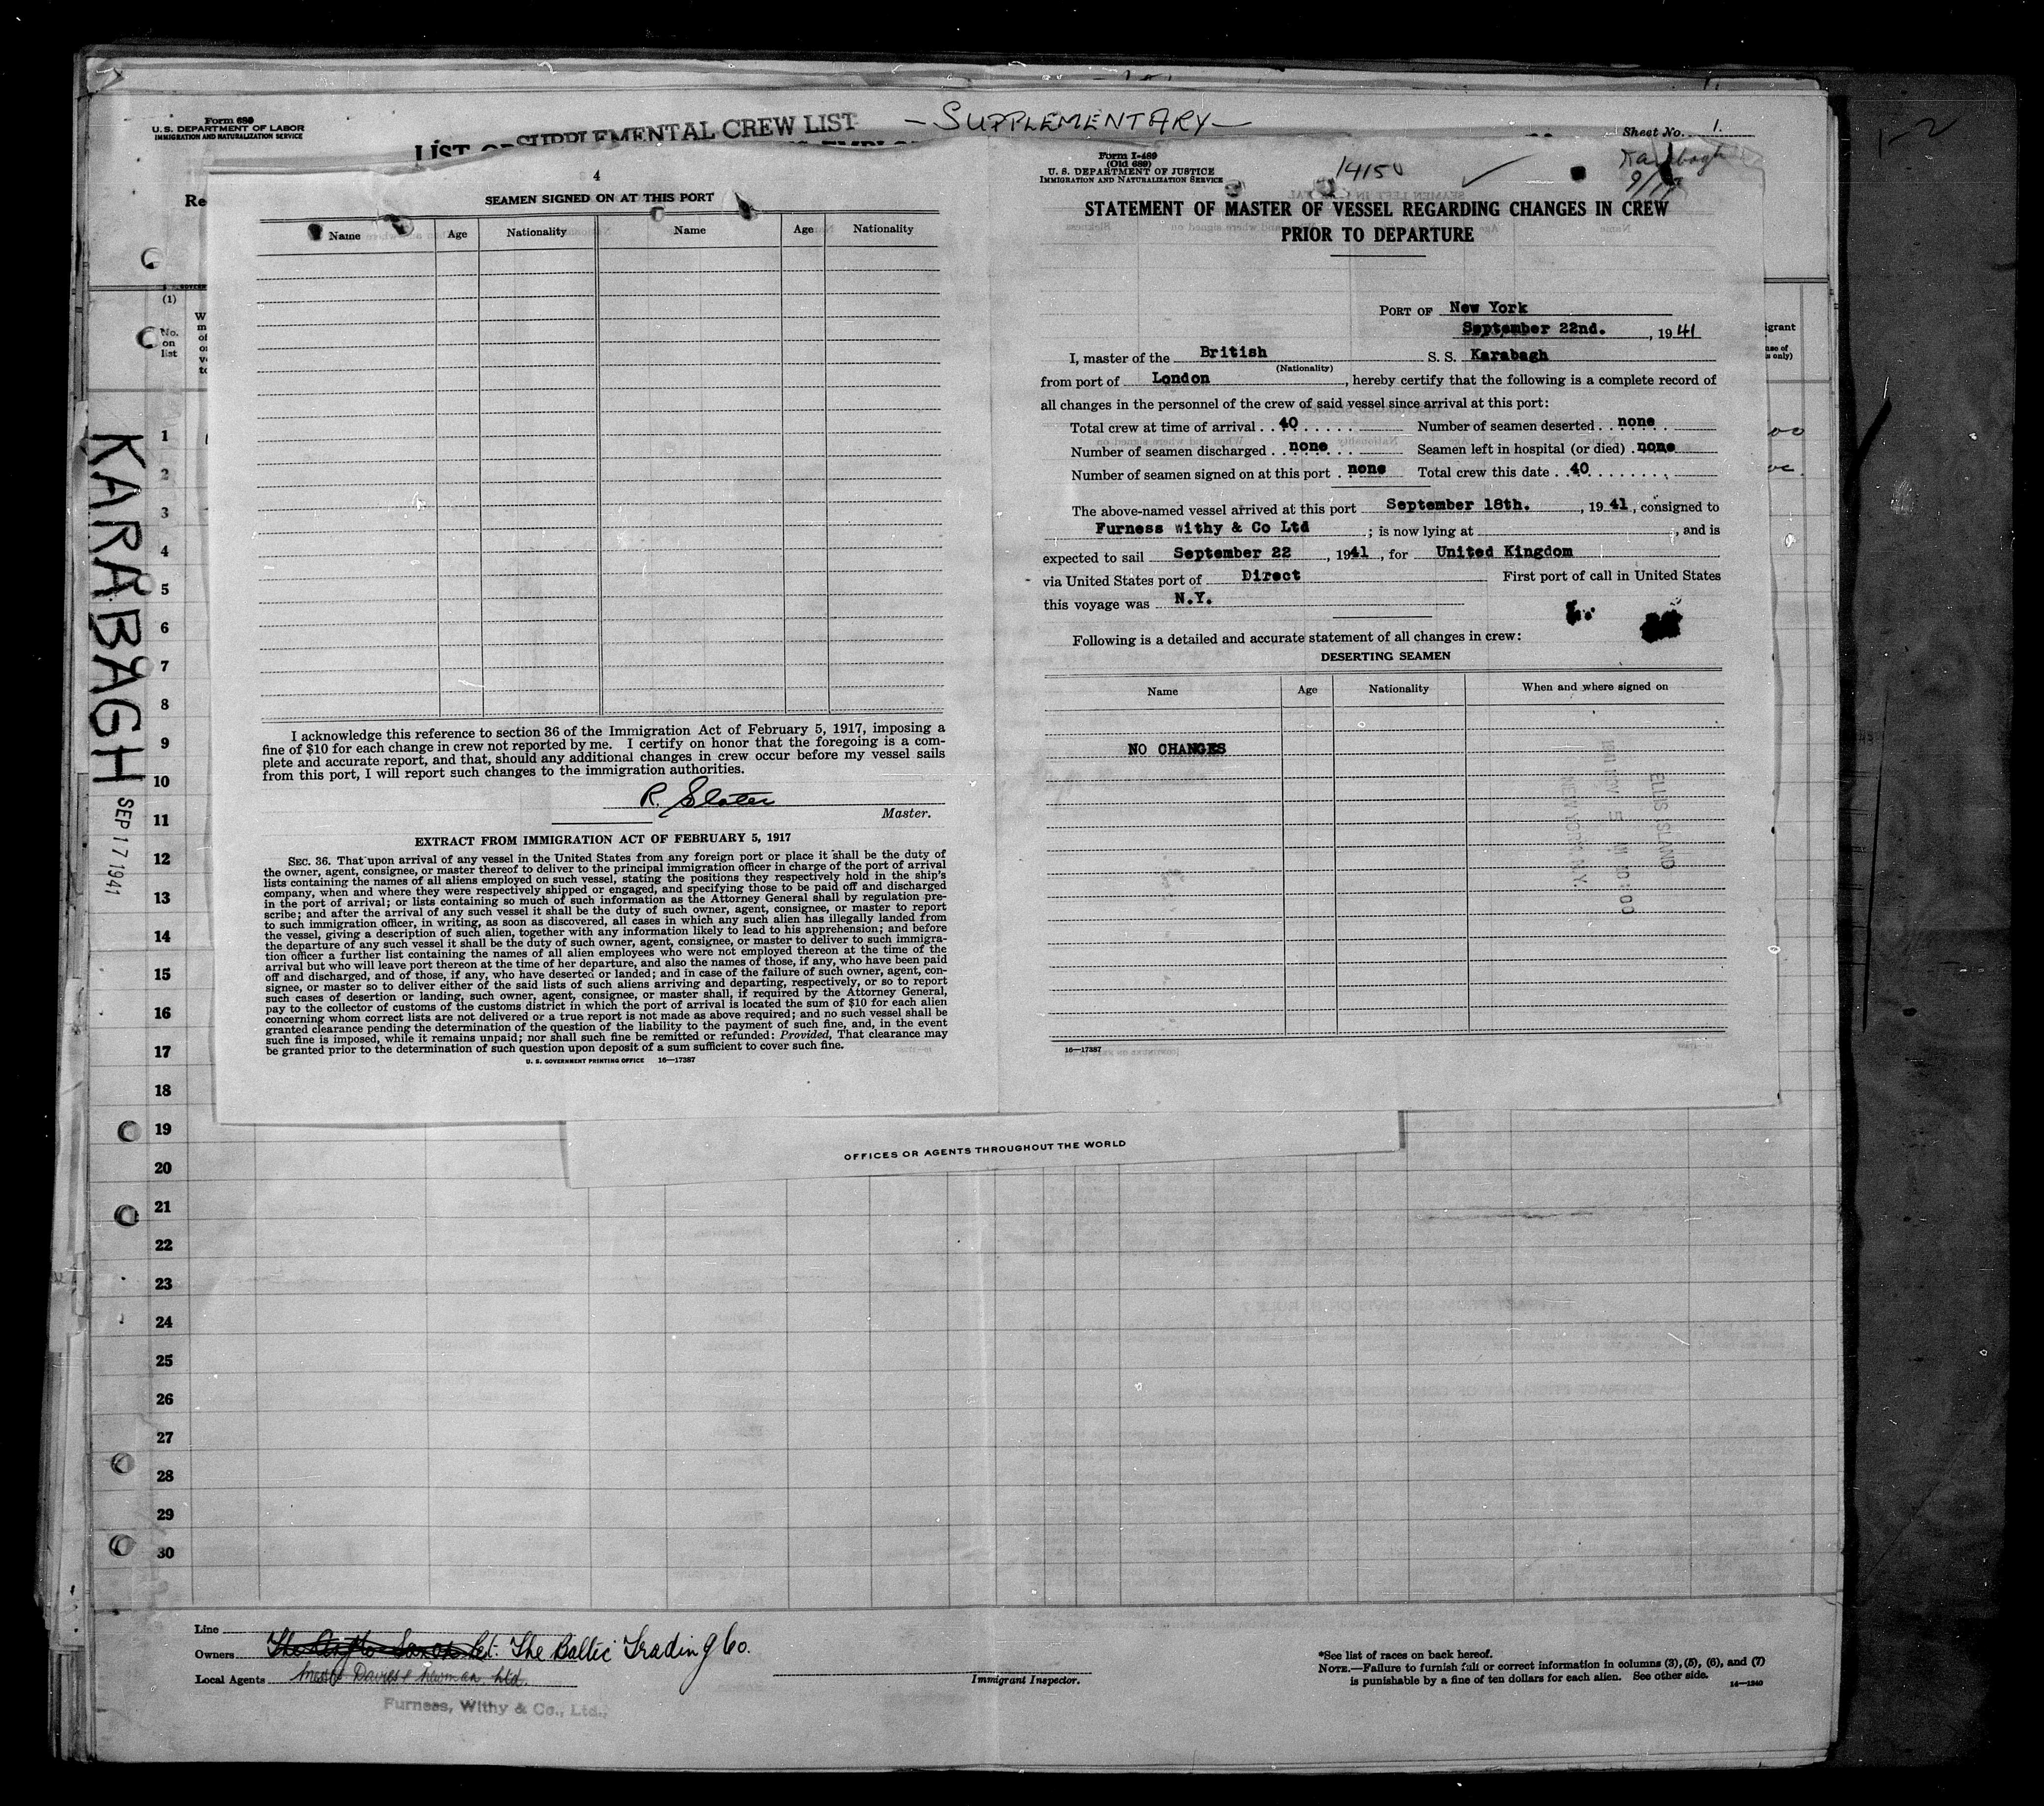 Form 689
U.S. DEPARTMENT OF LABOR
IMMIGRATION AND NATURALIZATION SERVICE
SUPPLEMENTAL CREW LIST
— SUPPLEMENTARY —
Sheet No. 1.
LIST O
Re
(1)
No. on list
4
SEAMEN SIGNED ON AT THIS PORT
Name Age Nationality Name Age Nationality
I acknowledge this reference to section 36 of the Immigration Act of February 5, 1917, imposing a
fine of $10 for each change in crew not reported by me. I certify on honor that the foregoing is a com-
plete and accurate report, and that, should any additional changes in crew occur before my vessel sails
from this port, I will report such changes to the immigration authorities.
R. Slater
Master.
EXTRACT FROM IMMIGRATION ACT OF FEBRUARY 5, 1917
SEC. 36. That upon arrival of any vessel in the United States from any foreign port or place it shall be the duty of
the owner, agent, consignee, or master thereof to deliver to the principal immigration officer in charge of the port of arrival
lists containing the names of all aliens employed on such vessel, stating the positions they respectively hold in the ship's
company, when and where they were respectively shipped or engaged, and specifying those to be paid off and discharged
in the port of arrival; or lists containing so much of such information as the Attorney General shall by regulation pre-
scribe; and after the arrival of any such vessel it shall be the duty of such owner, agent, consignee, or master to report
to such immigration officer, in writing, as soon as discovered, all cases in which any such alien has illegally landed from
the vessel, giving a description of such alien, together with any information likely to lead to his apprehension; and before
the departure of any such vessel it shall be the duty of such owner, agent, consignee, or master to deliver to such immigra-
tion officer a further list containing the names of all alien employees who were not employed thereon at the time of the
arrival but who will leave port thereon at the time of her departure, and also the names of those, if any, who have been paid
off and discharged, and of those, if any, who have deserted or landed; and in case of the failure of such owner, agent, con-
signee, or master so to deliver either of the said lists of such aliens arriving and departing, respectively, or so to report
such cases of desertion or landing, such owner, agent, consignee, or master shall, if required by the Attorney General,
pay to the collector of customs of the customs district in which the port of arrival is located the sum of $10 for each alien
concerning whom correct lists are not delivered or a true report is not made as above required; and no such vessel shall be
granted clearance pending the determination of the question of the liability to the payment of such fine, and, in the event
such fine is imposed, while it remains unpaid; nor shall such fine be remitted or refunded: Provided, That clearance may
be granted prior to the determination of such question upon deposit of a sum sufficient to cover such fine.
U. S. GOVERNMENT PRINTING OFFICE 16—17387
Form I-489
(Old 689)
U. S. DEPARTMENT OF JUSTICE
IMMIGRATION AND NATURALIZATION SERVICE
14150
Karabagh
9/17
STATEMENT OF MASTER OF VESSEL REGARDING CHANGES IN CREW
PRIOR TO DEPARTURE
PORT OF New York
September 22nd. , 1941
I, master of the British S. S. Karabagh
(Nationality)
from port of London , hereby certify that the following is a complete record of
all changes in the personnel of the crew of said vessel since arrival at this port:
Total crew at time of arrival . . 40 Number of seamen deserted . . none
Number of seamen discharged . . none Seamen left in hospital (or died) . none
Number of seamen signed on at this port . none Total crew this date . . 40
The above-named vessel arrived at this port September 18th. , 1941, consigned to
Furness Withy & Co Ltd ; is now lying at , and is
expected to sail September 22 , 1941 , for United Kingdom
via United States port of Direct First port of call in United States
this voyage was N.Y.
Following is a detailed and accurate statement of all changes in crew:
DESERTING SEAMEN
Name Age Nationality When and where signed on
NO CHANGES
ELLIS ISLAND
NEW YORK N.Y.
16—17387
KARABAGH
SEP 17 1941
1
2
3
4
5
6
7
8
9
10
11
12
13
14
15
16
17
18
19
20
21
22
23
24
25
26
27
28
29
30
OFFICES OR AGENTS THROUGHOUT THE WORLD
Line
Owners The Anglo Saxon Pet. The Baltic Trading Co.
Local Agents Messrs Davies & Newman Ltd.
Furness, Withy & Co., Ltd.,
Immigrant Inspector.
*See list of races on back hereof.
NOTE.—Failure to furnish full or correct information in columns (3), (5), (6), and (7)
is punishable by a fine of ten dollars for each alien. See other side.
14—1240